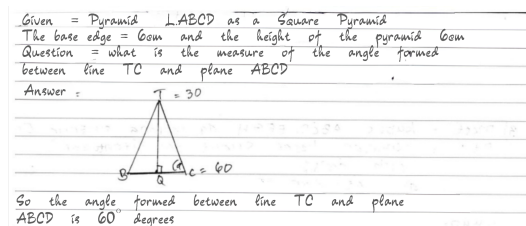 Given = Pyramid L.ABCD as a Square Pyramid
The base edge = 6cm and the height of the pyramid 6cm
Question = what is the measure of the angle formed
between line TC and plane ABCD
Answer :
T = 30
B
Q
α
C = 60
So the angle formed between line TC and plane
ABCD is 60° degrees